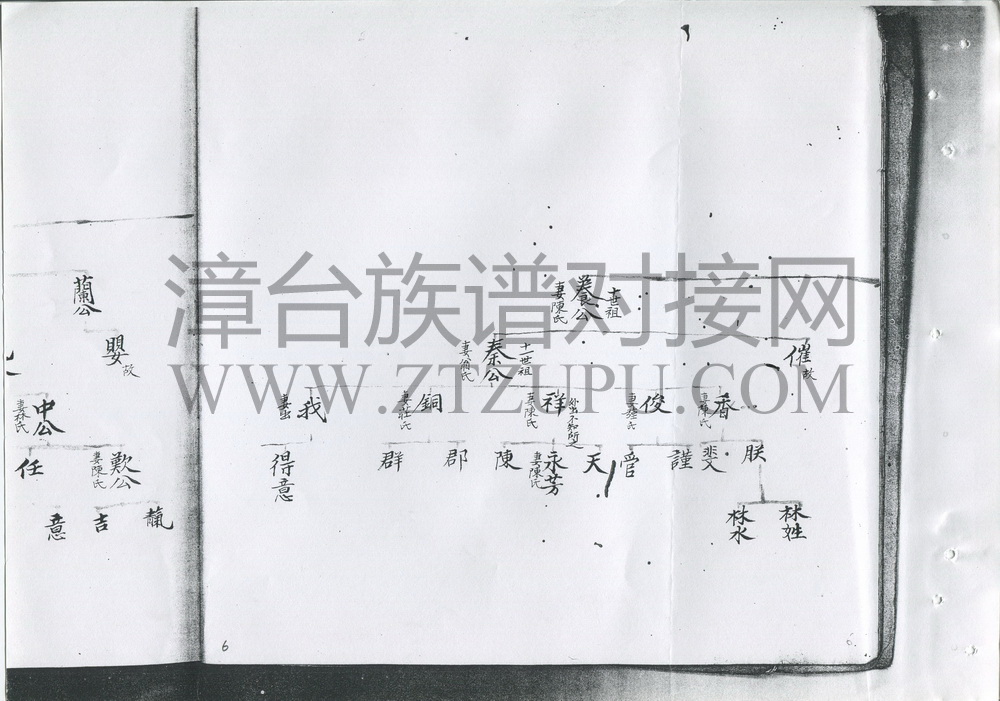 漳台族谱对接网
WWW.ZTZUPU.COM
十世祖
養公
妻陳氏
催故
十一世祖
秦公
妻翁氏
香
妻陳氏
俊
祥
外出不知所之
妻陳氏
銅
妻莊氏
我
朕
謹
天
永芳
妻陳氏
陳
郡
群
得意
林姓
林水
蘭公
嬰故
中公
妻林氏
歎公
妻陳氏
任
吉
意
6
6